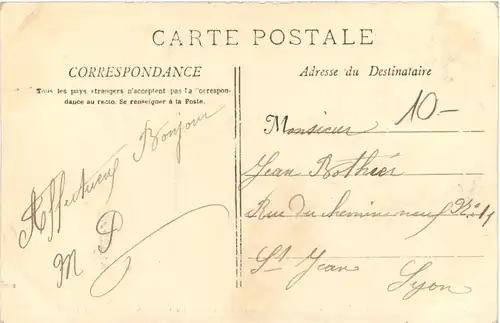 CARTE POSTALE
CORRESPONDANCE
Tous les pays étrangers n'acceptent pas la Correspon-
dance au recto. Se renseigner à la Poste.
Affectueux Bonjour
M P
Adresse du Destinataire
10-
Monsieur
Jean Bothier
Rue du chemin neuf No 11
St Jean
Lyon